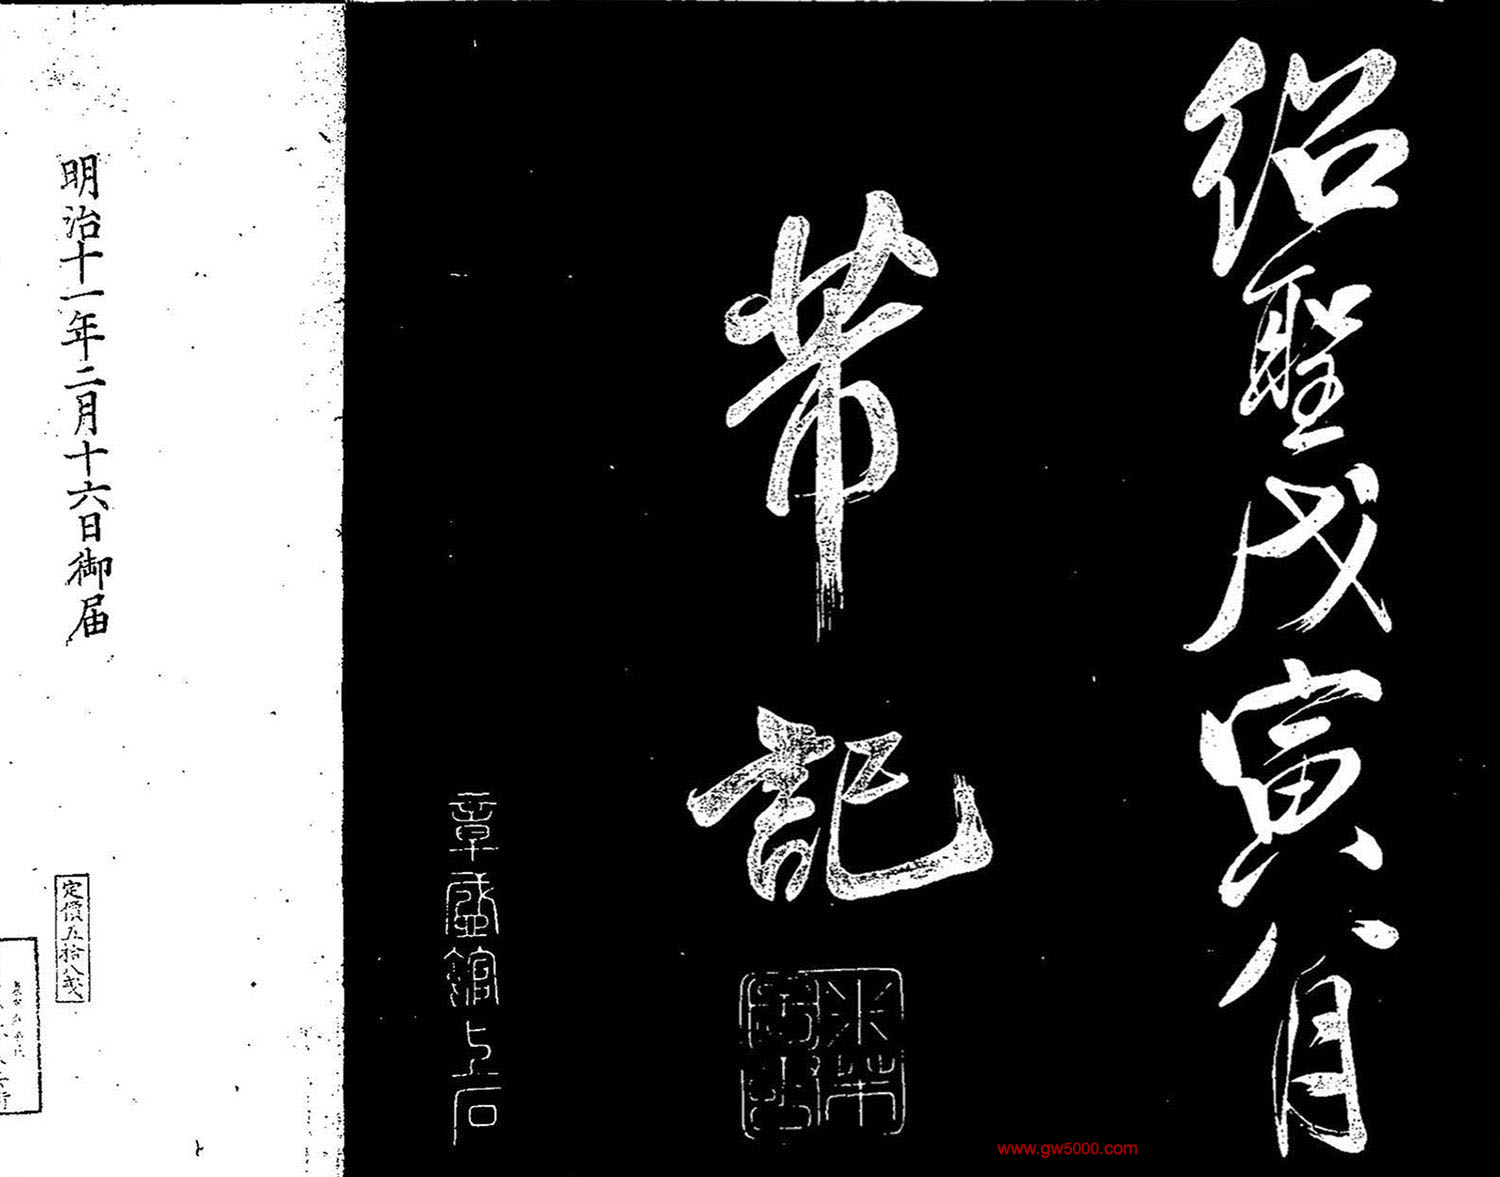 紹聖戊寅八月
芾記
米芾
章盛館上石
明治十一年二月十六日御届
定價五拾八戋
www.gw5000.com